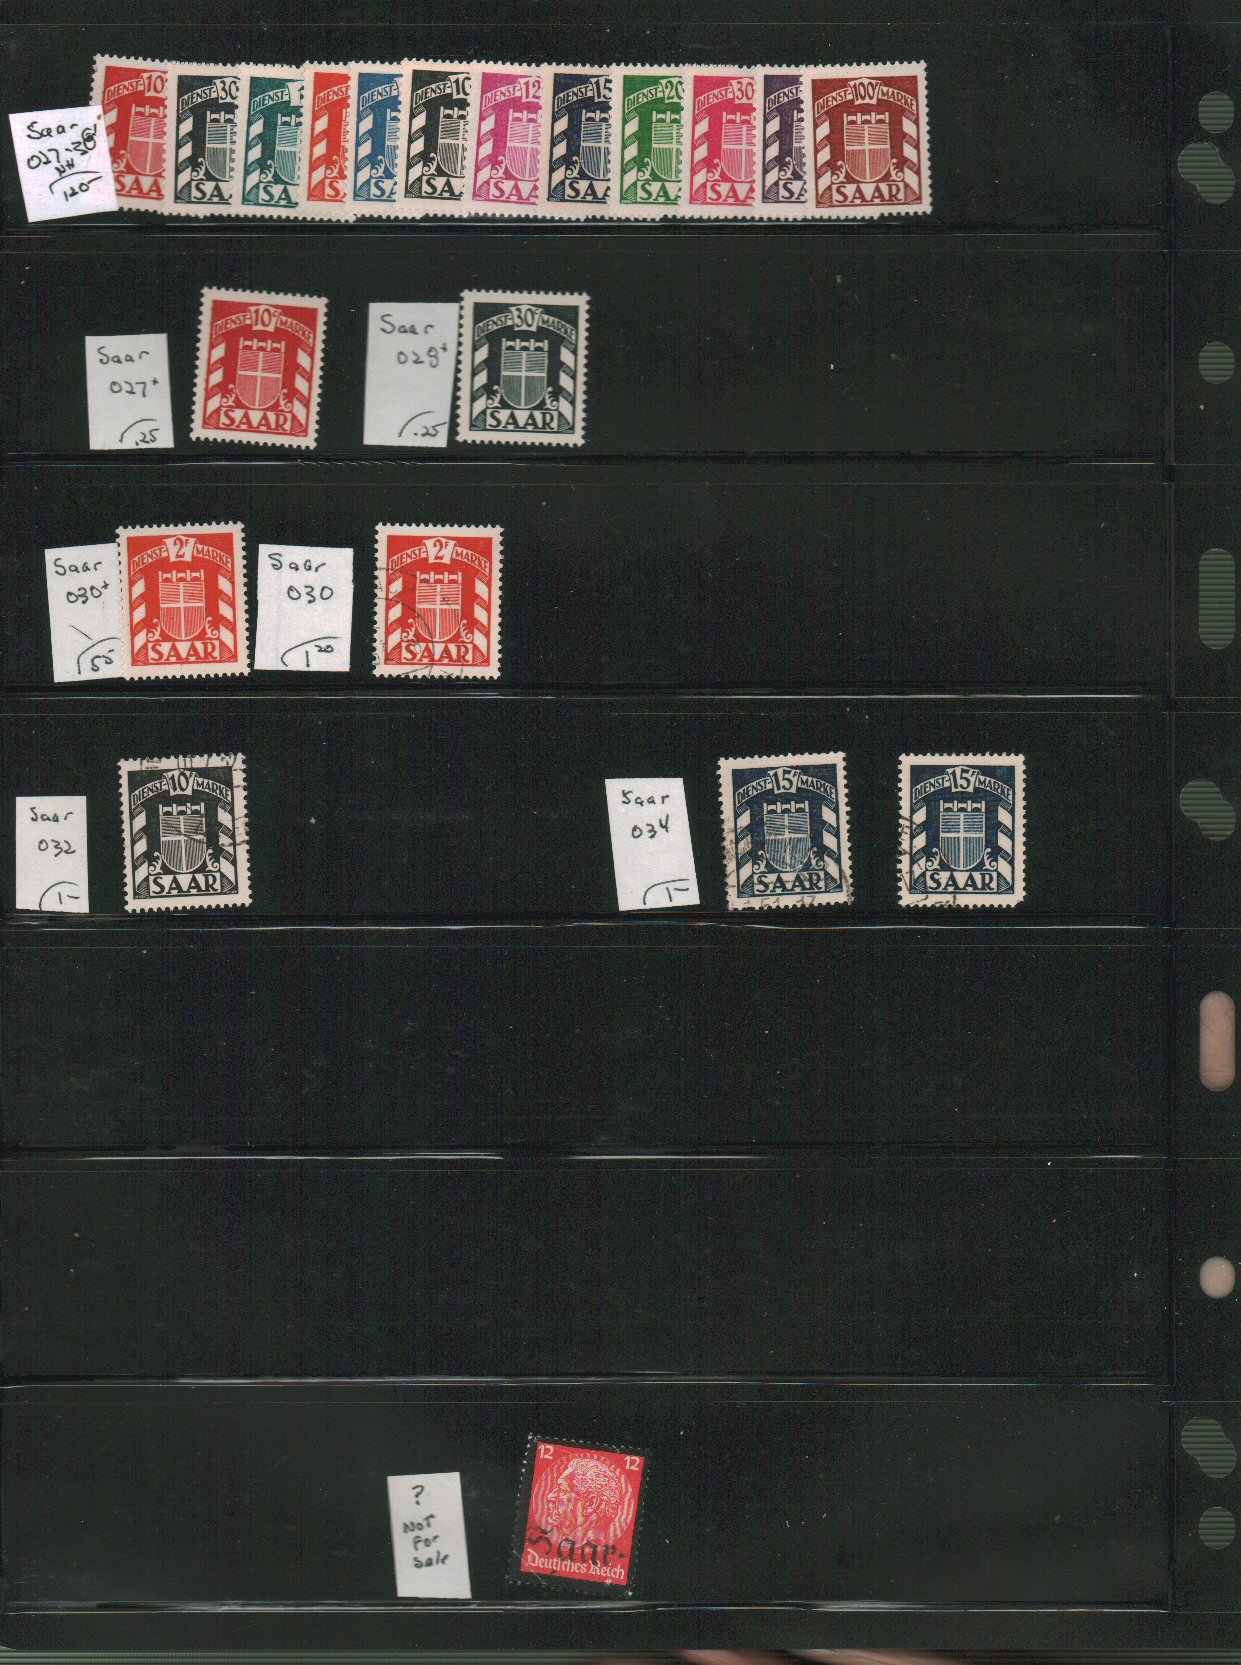 Saar
027-38
NH
120-
10
DIENST-
SAA
30
DIENST-
SA
DIENST-
SA
DIENST-
S
DIENST-
SA
10
DIENST-
SA
12
DIENST-
SAA
15
DIENST-
SA
20
DIENST-
SAA
30
DIENST-
SAA
DIENST-
SA
DIENST- 100F MARKE
SAAR
Saar
027*
.25
DIENST- 10c MARKE
SAAR
Saar
028*
.25
DIENST- 30c MARKE
SAAR
Saar
030*
55
DIENST- 2F MARKE
SAAR
Saar
030
1 20
DIENST- 2F MARKE
SAAR
Saar
032
1-
DIENST- 10F MARKE
SAAR
Saar
034
1-
DIENST- 15F MARKE
SAAR
DIENST- 15F MARKE
SAAR
?
NOT
for
sale
12 12
Saar-
Deutsches Reich